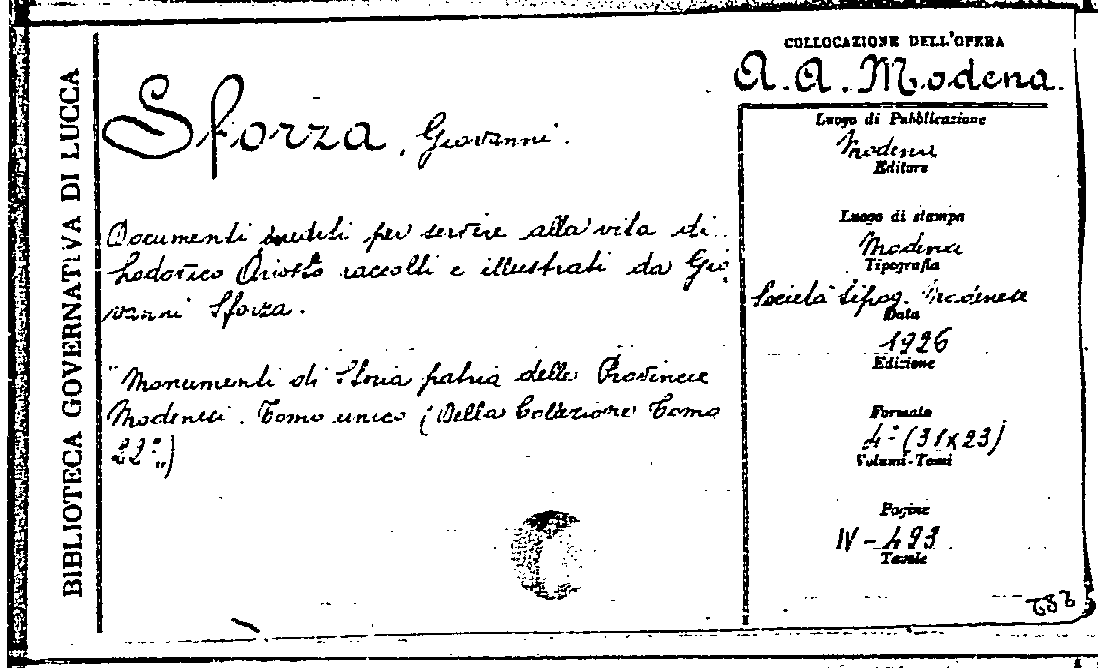 BIBLIOTECA GOVERNATIVA DI LUCCA
Sforza, Giovanni.
Documenti inediti per servire alla vita di
Lodovico Ariosto raccolti e illustrati da Gio
vanni Sforza.
"Monumenti di Storia patria delle Provincie
Modenesi. Tomo unico (Della Collezione Tomo
22°")
COLLOCAZIONE DELL'OPERA
A. A. Modena.
Luogo di Pubblicazione
Modena
Editore
Luogo di stampa
Modena
Tipografia
Società tipog. Modenese
Data
1926
Edizione
Formato
4° (31x23)
Volumi-Tomi
Pagine
IV-493
Tavole